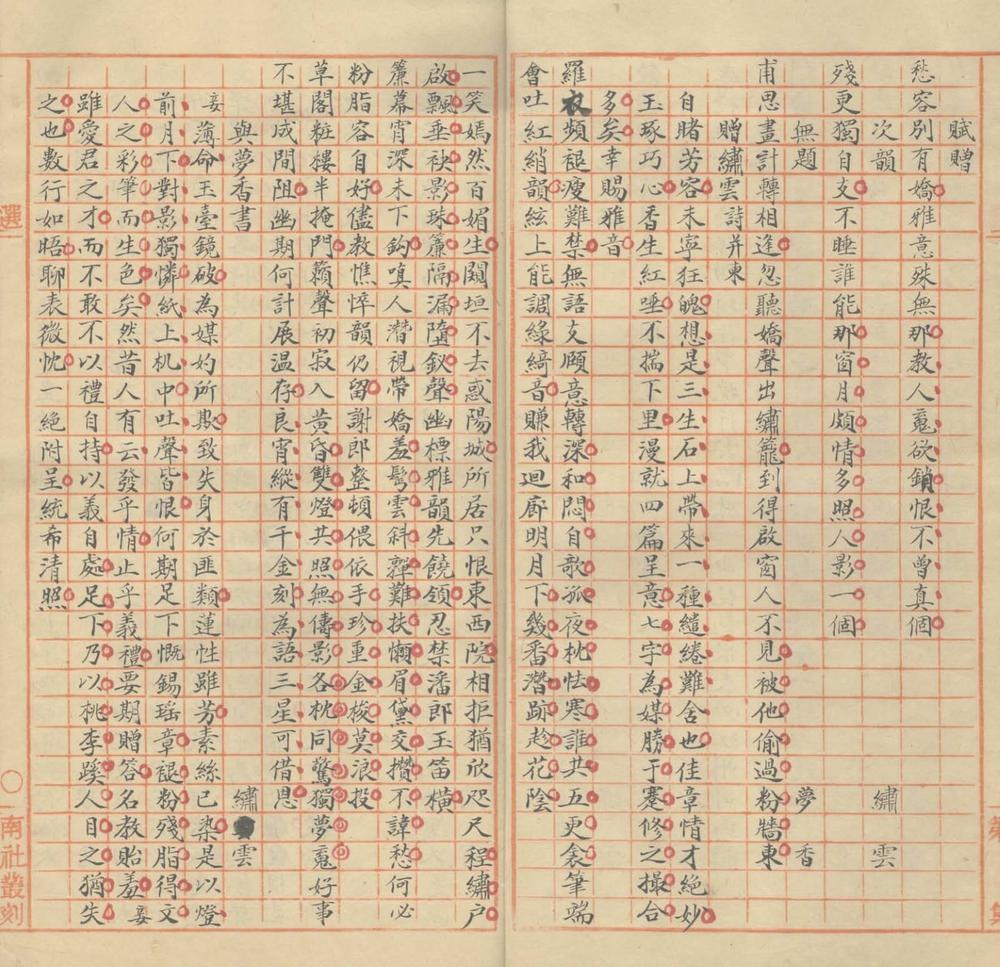 賦贈
愁容別有嬌雅意殊無那教人䰟欲鎖恨不曾真個
次韻　繡雲
殘更獨自支不睡誰能那窗月頗情多照人影一個
無題　夢香
甫思畫計轉相逢忽聽嬌聲出繡籠到得啟窗人不見被他偷過粉牆東
贈繡雲詩并柬
自睹芳容未寧狂魄想是三生石上帶來一種繾綣難舍也佳章情才絕妙
玉琢巧心香生紅唾不揣下里漫就四篇呈意七字為媒勝于蹇修之撮合
多矣幸賜雅音
羅衣頻褪瘦難禁無語支頤意轉深和悶自歌孤夜枕怯寒誰共五更衾筆端
會吐紅綃韻絃上能調綠綺音賺我迴廊明月下幾番潛跡趁花陰
一笑嫣然百媚生闚垣不去惑陽城所居只恨東西院相拒猶欣咫尺程繡戶
啟飄垂袂影珠簾隔漏墮釵聲幽標雅韻先饒領忍禁潘郎玉笛橫
簾幕宵深未下鈎嗔人潛視帶嬌羞鬓雲斜嚲難扶懶眉黛交攢不諱愁何必
粉脂容自好儘教憔悴韻仍留謝郎整頓偎依手珍重金梭莫浪投
草閣粧樓半掩門籟聲初寂入黃昏雙燈共照無儔影各枕同驚獨夢䰟好事
不堪成間阻幽期何計展溫存良宵縱有千金刻為語三星可借恩
與夢香書　繡雲
妾薄命玉臺鏡破為媒妁所欺致失身於匪類蓮性雖芳素絲已染是以燈
前月下對影獨憐紙上机中吐聲皆恨何期足下慨錫瑤章褪粉殘脂得文
人之彩筆而生色矣然昔人有云發乎情止乎義禮要期贈答名教貽羞妾
雖愛君之才而不敢不以禮自持以義自處足下乃以桃李蹊人目之猶失
之也數行如晤聊表微忱一絕附呈統希清照
選
南社叢刻
集